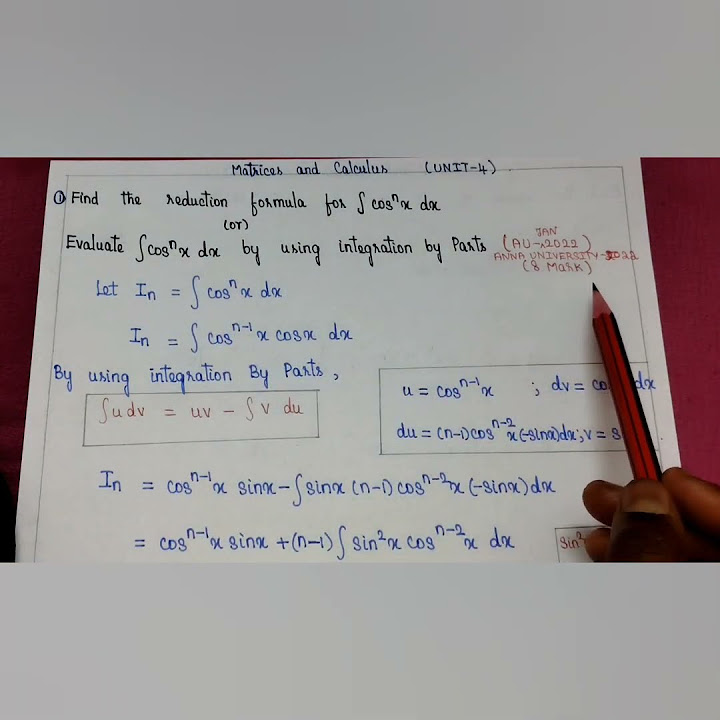 Matrices and Calculus (UNIT-4)
① Find the reduction formula for ∫ cosⁿx dx
(or)
Evaluate ∫cosⁿx dx by using integration by Parts (AU-2022) JAN
ANNA UNIVERSITY-2022
(8 Mark)
Let Iₙ = ∫ cosⁿx dx
Iₙ = ∫ cosⁿ⁻¹x cosx dx
By using integration By Parts,
∫udv = uv - ∫v du
u = cosⁿ⁻¹x ; dv = dx
du = (n-1)cosⁿ⁻²x(-sinx)dx; v =
Iₙ = cosⁿ⁻¹x sinx - ∫sinx (n-1) cosⁿ⁻²x (-sinx)dx
= cosⁿ⁻¹x sinx + (n-1) ∫ sin²x cosⁿ⁻²x dx
sin²